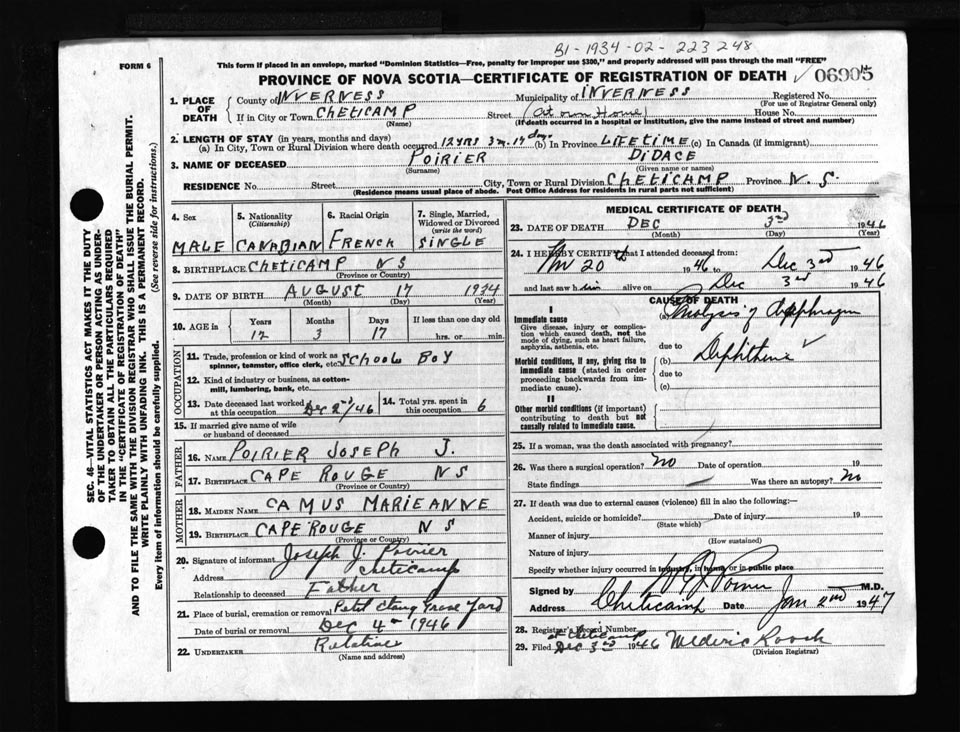 B1-1934-02-223248
FORM 6
This form if placed in an envelope, marked "Dominion Statistics—Free, penalty for improper use $300," and properly addressed will pass through the mail "FREE"
PROVINCE OF NOVA SCOTIA—CERTIFICATE OF REGISTRATION OF DEATH 06905
1. PLACE OF DEATH County of INVERNESS Municipality of INVERNESS Registered No.
(For use of Registrar General only)
If in City or Town CHETICAMP Street (At own Home) House No.
(Name) (If death occurred in a hospital or institution, give the name instead of street and number)
2. LENGTH OF STAY (in years, months and days)
(a) In City, Town or Rural Division where death occurred 12 YRS 3 m. 17 days (b) In Province LIFETIME (c) In Canada (if immigrant)
3. NAME OF DECEASED POIRIER DIDACE
(Surname) (Given name or names)
RESIDENCE No. Street City, Town or Rural Division CHETICAMP Province N.S.
(Residence means usual place of abode. Post Office Address for residents in rural parts not sufficient)
4. Sex MALE
5. Nationality (Citizenship) CANADIAN
6. Racial Origin FRENCH
7. Single, Married, Widowed or Divorced (write the word) SINGLE
8. BIRTHPLACE CHETICAMP NS
(Province or Country)
9. DATE OF BIRTH AUGUST 17 1934
(Month) (Day) (Year)
10. AGE in Years Months Days If less than one day old
12 3 17 hrs. or min.
OCCUPATION
11. Trade, profession or kind of work as spinner, teamster, office clerk, etc. SCHOOL BOY
12. Kind of industry or business, as cotton-mill, lumbering, bank, etc.
13. Date deceased last worked at this occupation Dec 2nd/46
14. Total yrs. spent in this occupation 6
15. If married give name of wife or husband of deceased
FATHER
16. NAME POIRIER JOSEPH J.
17. BIRTHPLACE CAPE ROUGE NS
(Province or Country)
MOTHER
18. MAIDEN NAME CAMUS MARIEANNE
19. BIRTHPLACE CAPE ROUGE NS
(Province or Country)
20. Signature of informant Joseph J. Poirier
Address Cheticamp
Relationship to deceased Father
21. Place of burial, cremation or removal Yard
Date of burial or removal Dec 4 1946
22. UNDERTAKER Relative
(Name and address)
MEDICAL CERTIFICATE OF DEATH
23. DATE OF DEATH DEC 3rd 1946
(Month) (Day) (Year)
24. I HEREBY CERTIFY that I attended deceased from:
Nov 20th 1946 to Dec 3rd 1946
and last saw him alive on Dec 3rd 1946
CAUSE OF DEATH
I
Immediate cause (a) Paralysis of diaphragm
Give disease, injury or complication which caused death, not the mode of dying, such as heart failure, asphyxia, asthenia, etc.
due to
Morbid conditions, if any, giving rise to immediate cause (stated in order proceeding backwards from immediate cause).
(b) Diphtheria
due to
(c)
II
Other morbid conditions (if important) contributing to death but not causally related to immediate cause.
25. If a woman, was the death associated with pregnancy?
26. Was there a surgical operation? No Date of operation 19
State findings Was there an autopsy? No
27. If death was due to external causes (violence) fill in also the following:—
Accident, suicide or homicide? Date of injury 19
(State which)
Manner of injury
(How sustained)
Nature of injury
Specify whether injury occurred in industry, in home or in public place
Signed by M.D.
Address Cheticamp Date Jan 2nd 1947
28. Registrar's Record Number
29. Filed at Cheticamp Dec 3rd 1946
(Division Registrar)
SEC. 46—VITAL STATISTICS ACT MAKES IT THE DUTY
OF THE UNDERTAKER OR PERSON ACTING AS UNDER-
TAKER TO OBTAIN ALL THE PARTICULARS REQUIRED
IN THE "CERTIFICATE OF REGISTRATION OF DEATH"
AND TO FILE THE SAME WITH THE DIVISION REGISTRAR WHO SHALL ISSUE THE BURIAL PERMIT.
WRITE PLAINLY WITH UNFADING INK. THIS IS A PERMANENT RECORD.
Every item of information should be carefully supplied. (See reverse side for instructions.)